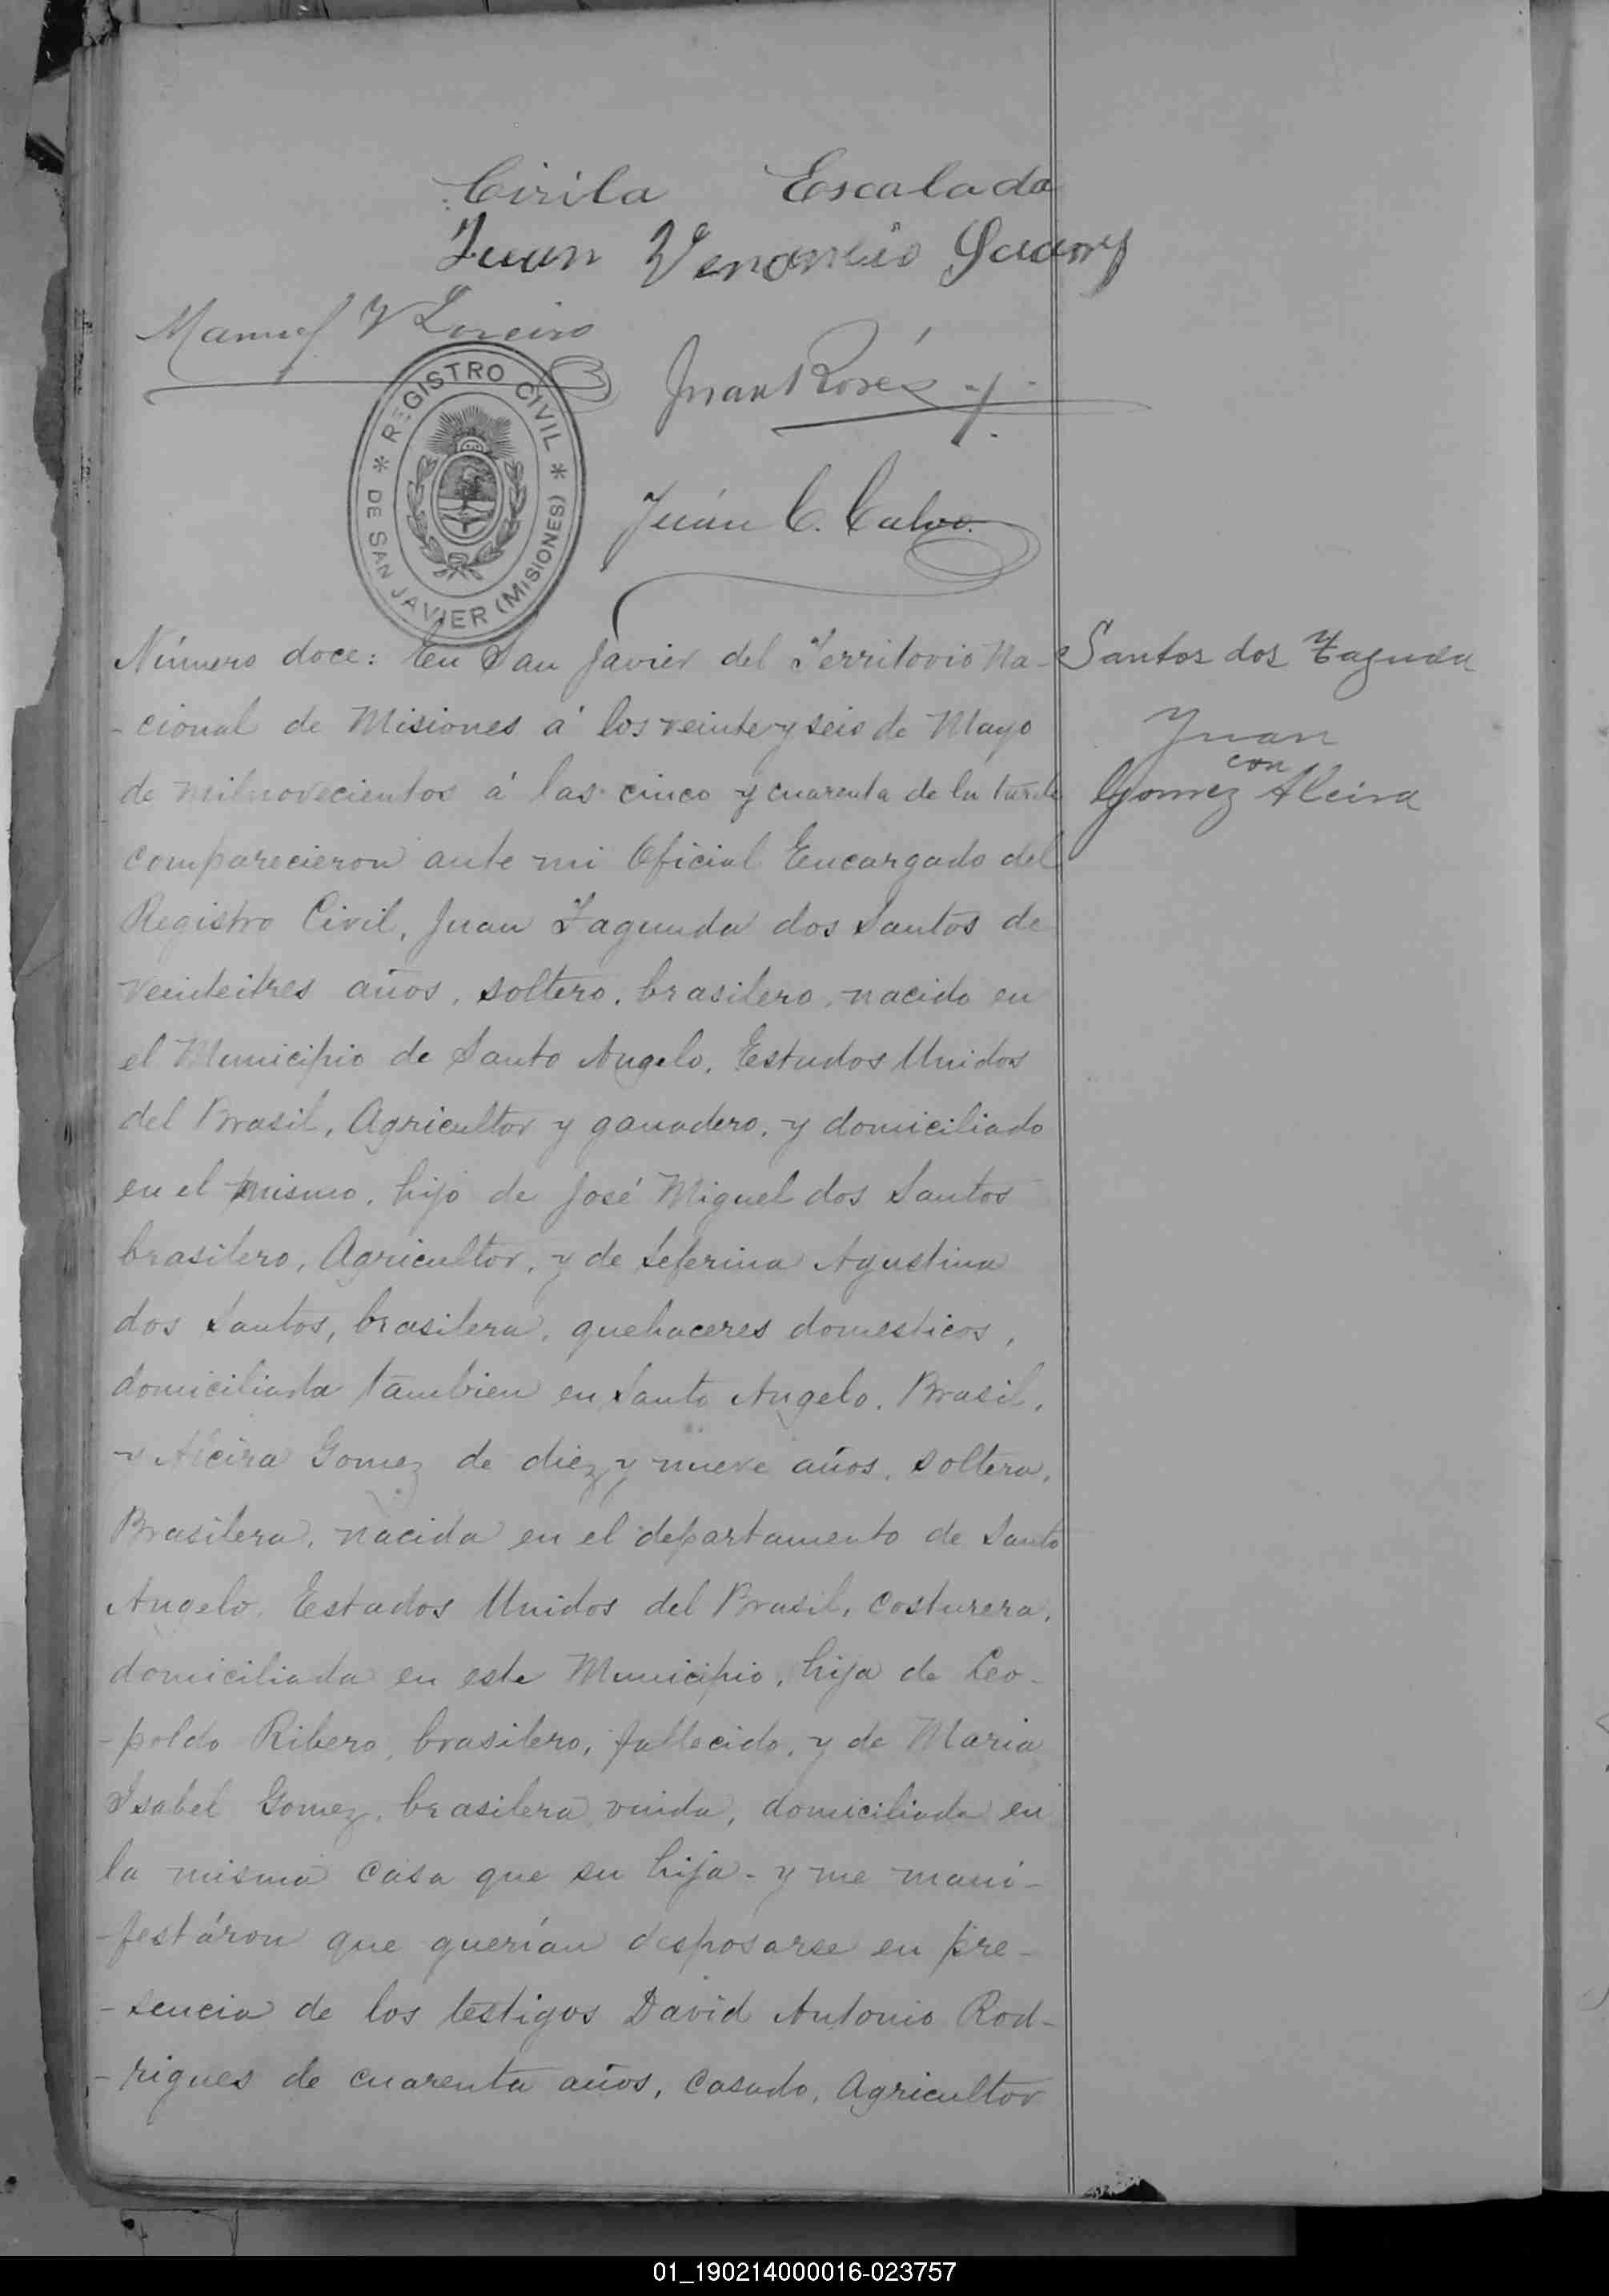 Cirila Escalada
Juan Venancio
Manuel V Loreiro
Juan Rosés y.
REGISTRO CIVIL
DE SAN JAVIER (MISIONES)
Juán C. Calvo.
Número doce: En San Javier del Territorio Na-
-cional de Misiones á los veinte y seis de Mayo
de mil novecientos á las cinco y cuarenta de la tarde
comparecieron ante mi Oficial Encargado del
Registro Civil, Juan Fagunda dos Santos de
veinteitres años, soltero, brasilero, nacido en
el Municipio de Santo Angelo, Estados Unidos
del Brasil, Agricultor y ganadero, y domiciliado
en el mismo, hijo de José Miguel dos Santos
brasilero, Agricultor, y de Seferina Agustina
dos Santos, brasilera, quehaceres domesticos,
domiciliada tambien en Santo Angelo, Brasil,
y Alcira Gomez de diez y nueve años, soltera,
Brasilera, nacida en el departamento de Santo
Angelo, Estados Unidos del Brasil, costurera,
domiciliada en este Municipio, hija de Leo-
-poldo Ribero, brasilero, fallecido, y de Maria
Isabel Gomez, brasilera, viuda, domiciliada en
la misma casa que su hija - y me mani-
-festáron que querían desposarse en pre-
-sencia de los testigos David Antonio Rod-
-rigues de cuarenta años, casado, Agricultor
Santos dos Fagunda
Juan
con
Gomez Alcira
01_190214000016-023757